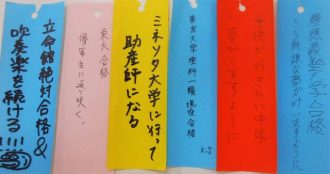 慶應義塾大学合格
という無謀な夢が叶いますように
子供が行きたい中学
へ受かりますように
東京大学理科一類現役合格
K.S
ミネソタ大学に行って
助産師になる
東大合格
優軍主に返り咲く。
立命館絶対合格&
吹奏楽を続ける!!!